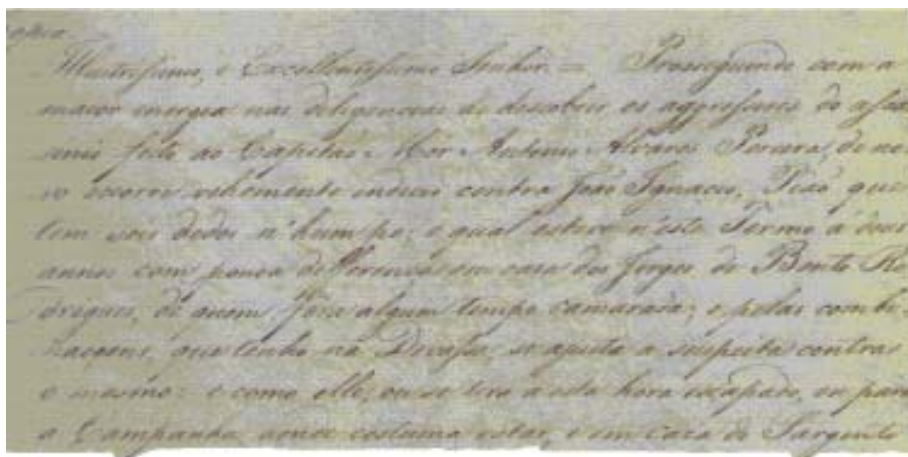 Illustrissimo, e Excellentissimo Senhor = Proseguindo com a
maior energia nas deligencias de descobrir os aggressores do assas
sinio feito ao Capitaõ Mór Antonio Alvares Pereira, de no
vo occorre vehemente indicio contra Joaõ Ignacio, Piaõ, que
tem seis dedos n'hum pe; o qual esteve n'este Termo á dous
annos com pouca differença em casa dos Jorges, de Bento Ro
drigues, de quem fora algum tempo camarada; e pelas combi
naçoens, que tenho na Devassa, se ajusta a suspeita contra
o mesmo: e como elle, ou se terá a esta hora escapado, ou para
a Campanha, aonde costuma estar, e em Casa do Sargento